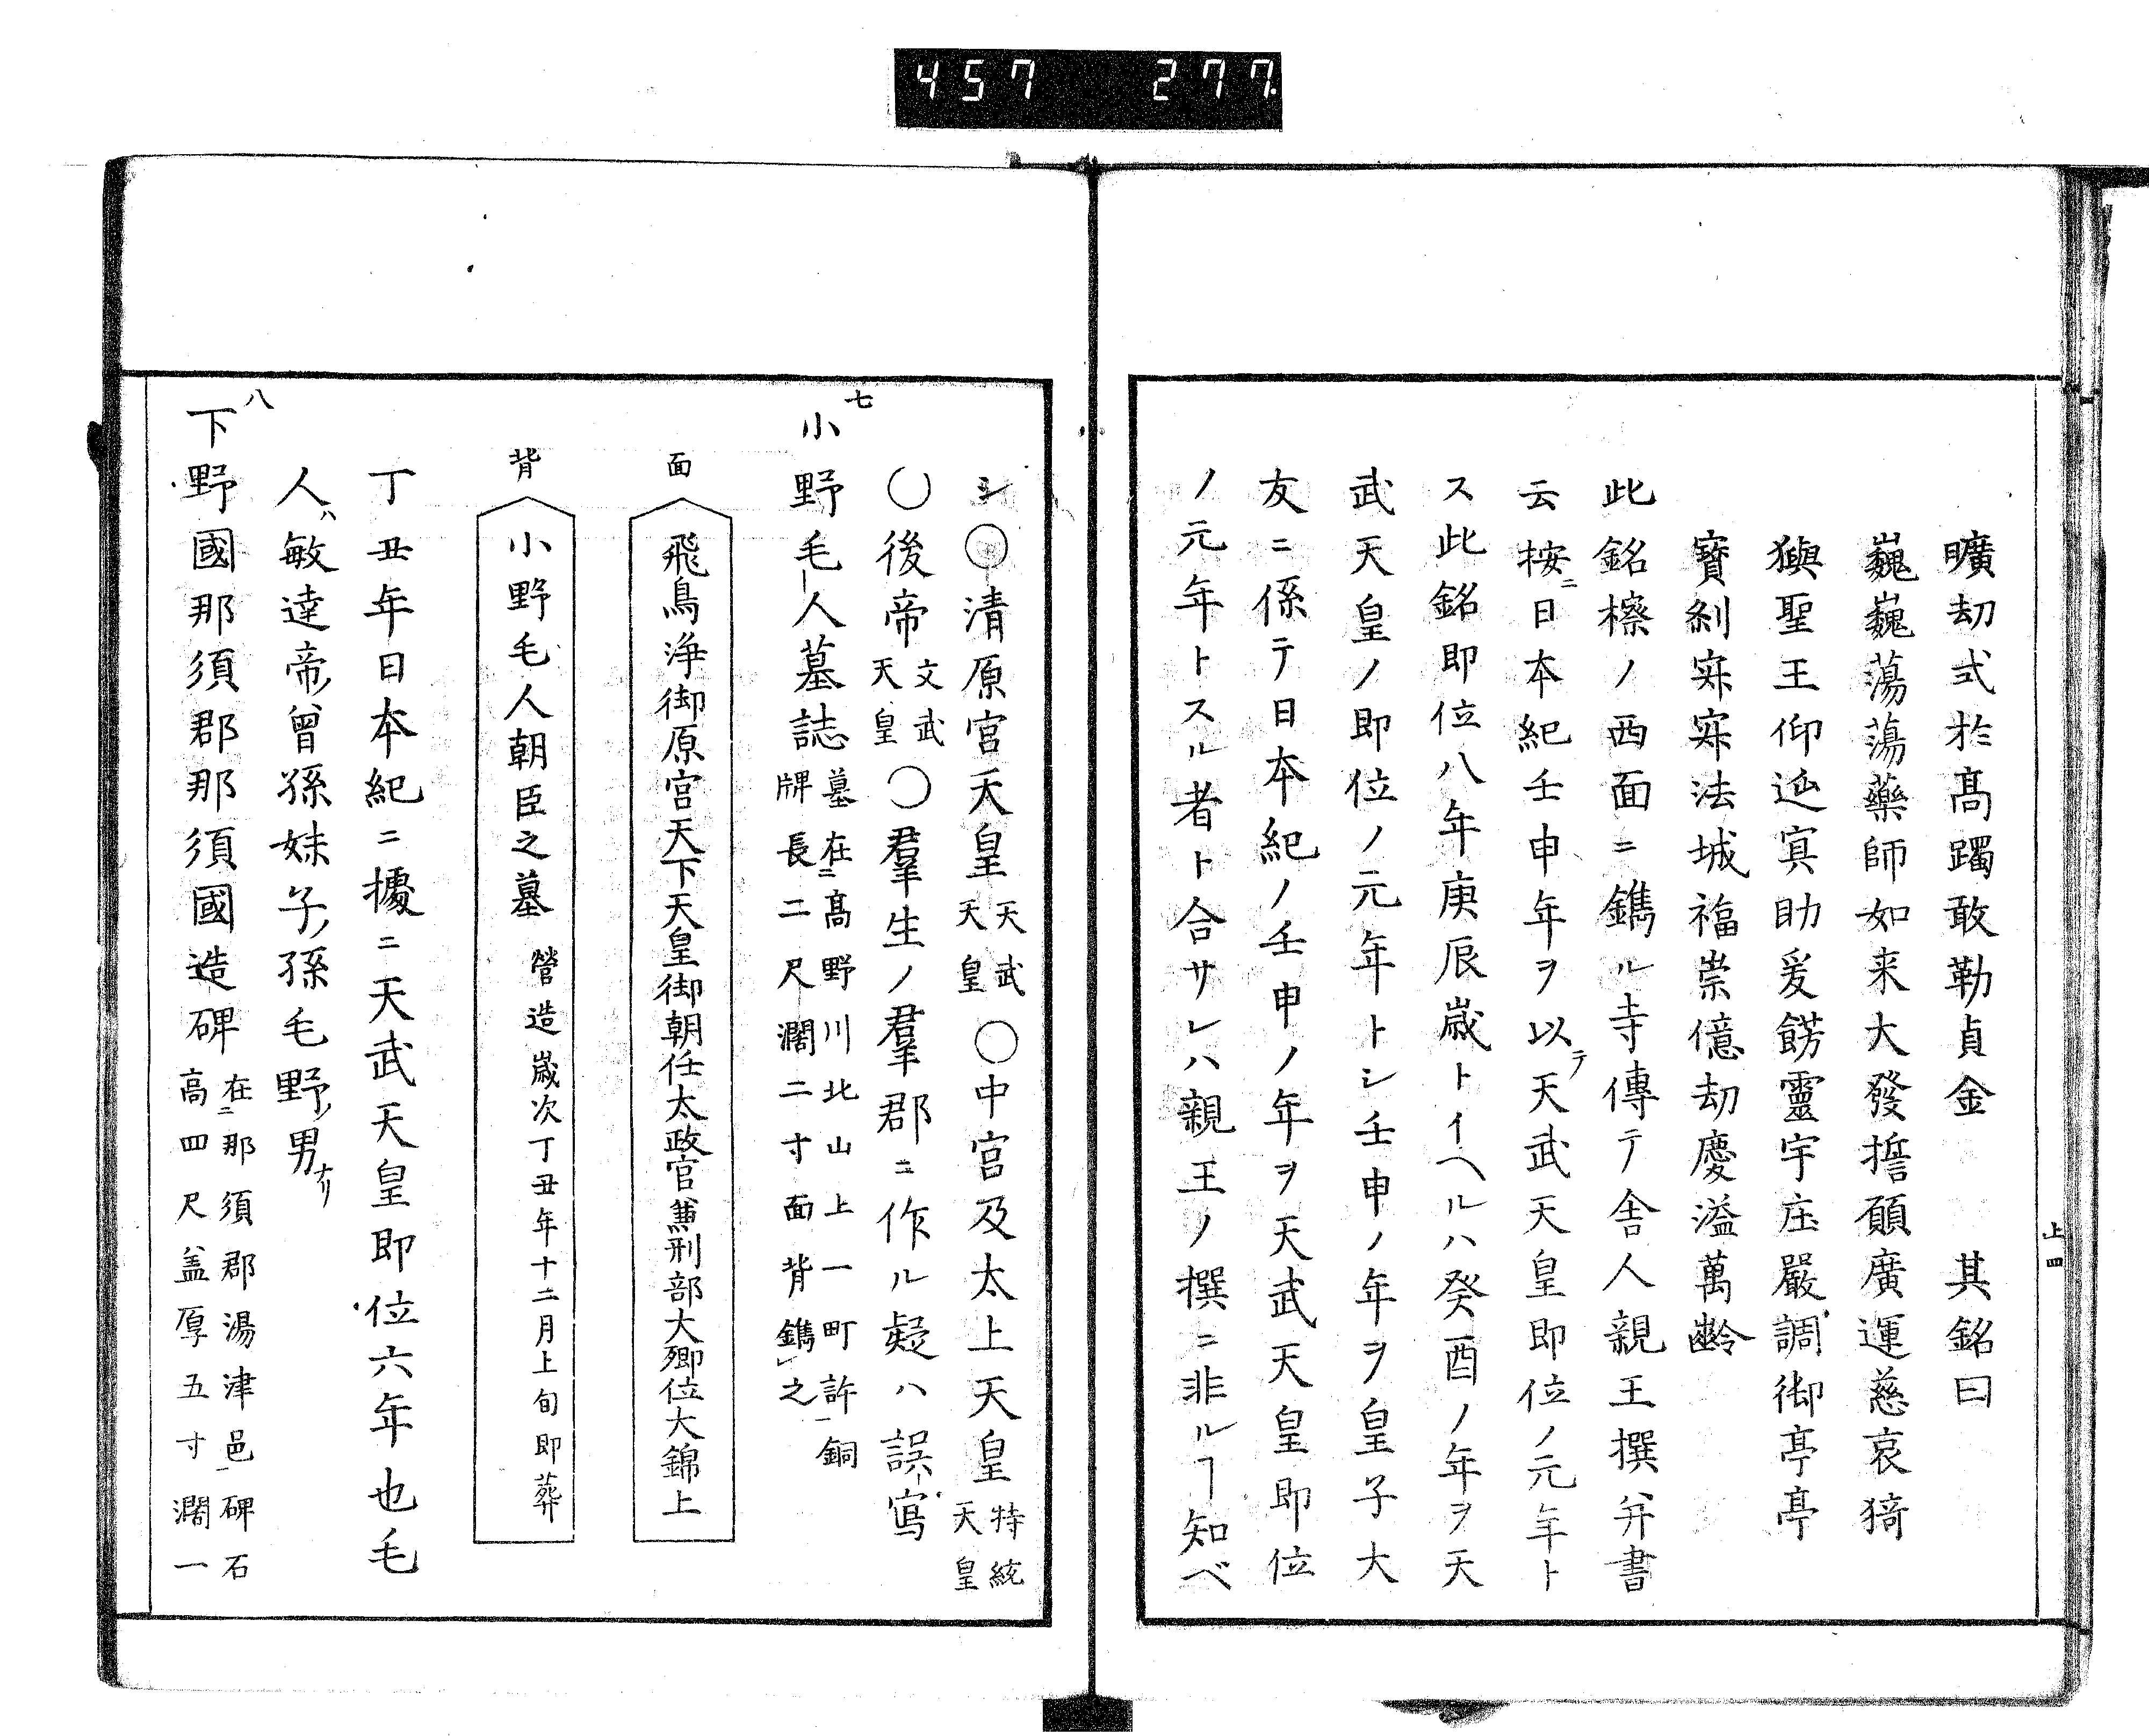 457 277.
上四
曠劫式於髙躅敢勒貞金　其銘曰
巍巍蕩蕩藥師如来大發誓願廣運慈哀猗
㺞聖王仰延冥助爰餝靈宇庄嚴調御亭亭
寳刹寂寂法城福崇億劫慶溢萬齡
此銘檫ノ西面ニ鐫ル寺傳テ舎人親王撰并書
云按ニ日本紀壬申年ヲ以テ天武天皇即位ノ元年ト
ス此銘即位八年庚辰歳トイヘルハ癸酉ノ年ヲ天
武天皇ノ即位ノ元年トシ壬申ノ年ヲ皇子大
友ニ係テ日本紀ノ壬申ノ年ヲ天武天皇即位
ノ元年トスル者ト合サレハ親王ノ撰ニ非ルヿ知ベ
シ〇清原宮天皇天武天皇〇中宮及太上天皇持統天皇
〇後帝文武天皇〇羣生ノ羣郡ニ作ル疑ハ誤寫
七
小野毛人墓誌墓在髙野川北山上一町許銅
牌長二尺濶二寸面背鐫之
面
飛鳥浄御原宮天下天皇御朝任太政官兼刑部大卿位大錦上
背
小野毛人朝臣之墓　營造歳次丁丑年十二月上旬即葬
丁丑年日本紀ニ據ニ天武天皇即位六年也毛
人ハ敏達帝ノ曾孫妹子ノ孫毛野ノ男ナリ
八
下野國那須郡那須國造碑在ニ那須郡湯津邑碑石
高四尺盖厚五寸濶一